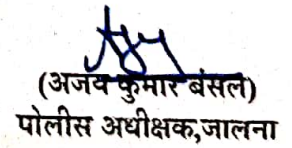 (अजय कुमार बंसल)
पोलीस अधीक्षक,जालना